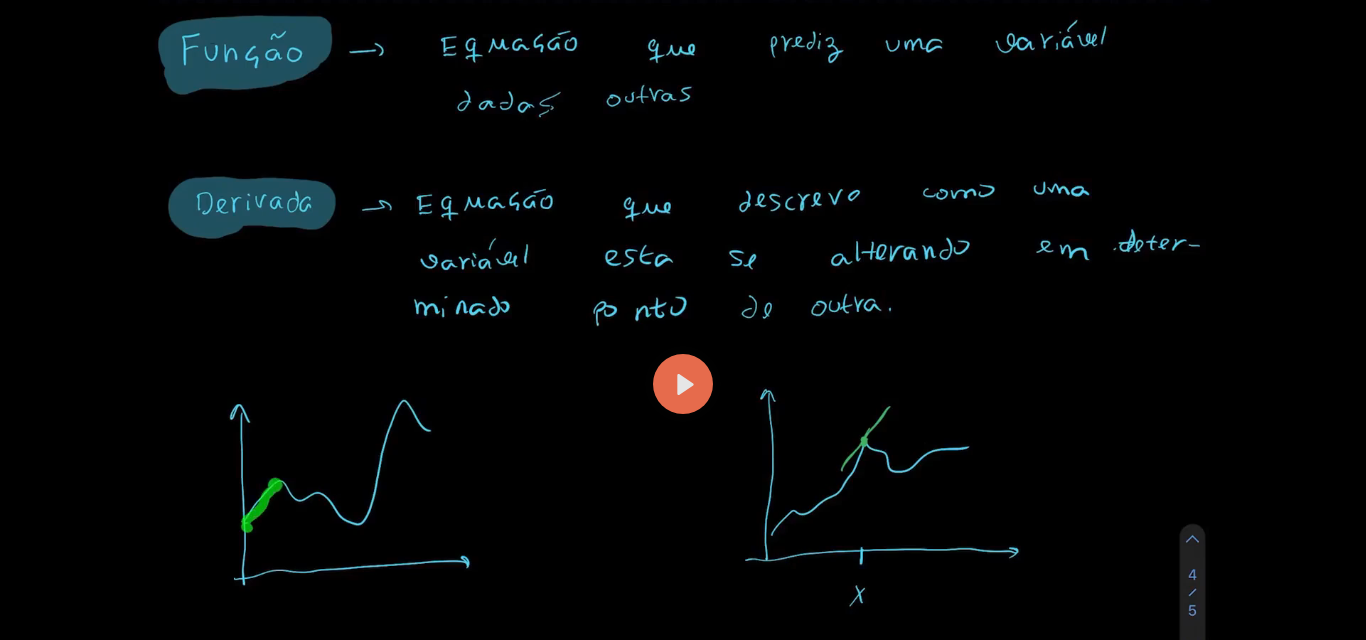 Função → Equação que prediz uma variável
dadas outras
Derivada → Equação que descrevo como uma
variável esta se alterando em deter-
minado ponto de outra.
X
4
/
5